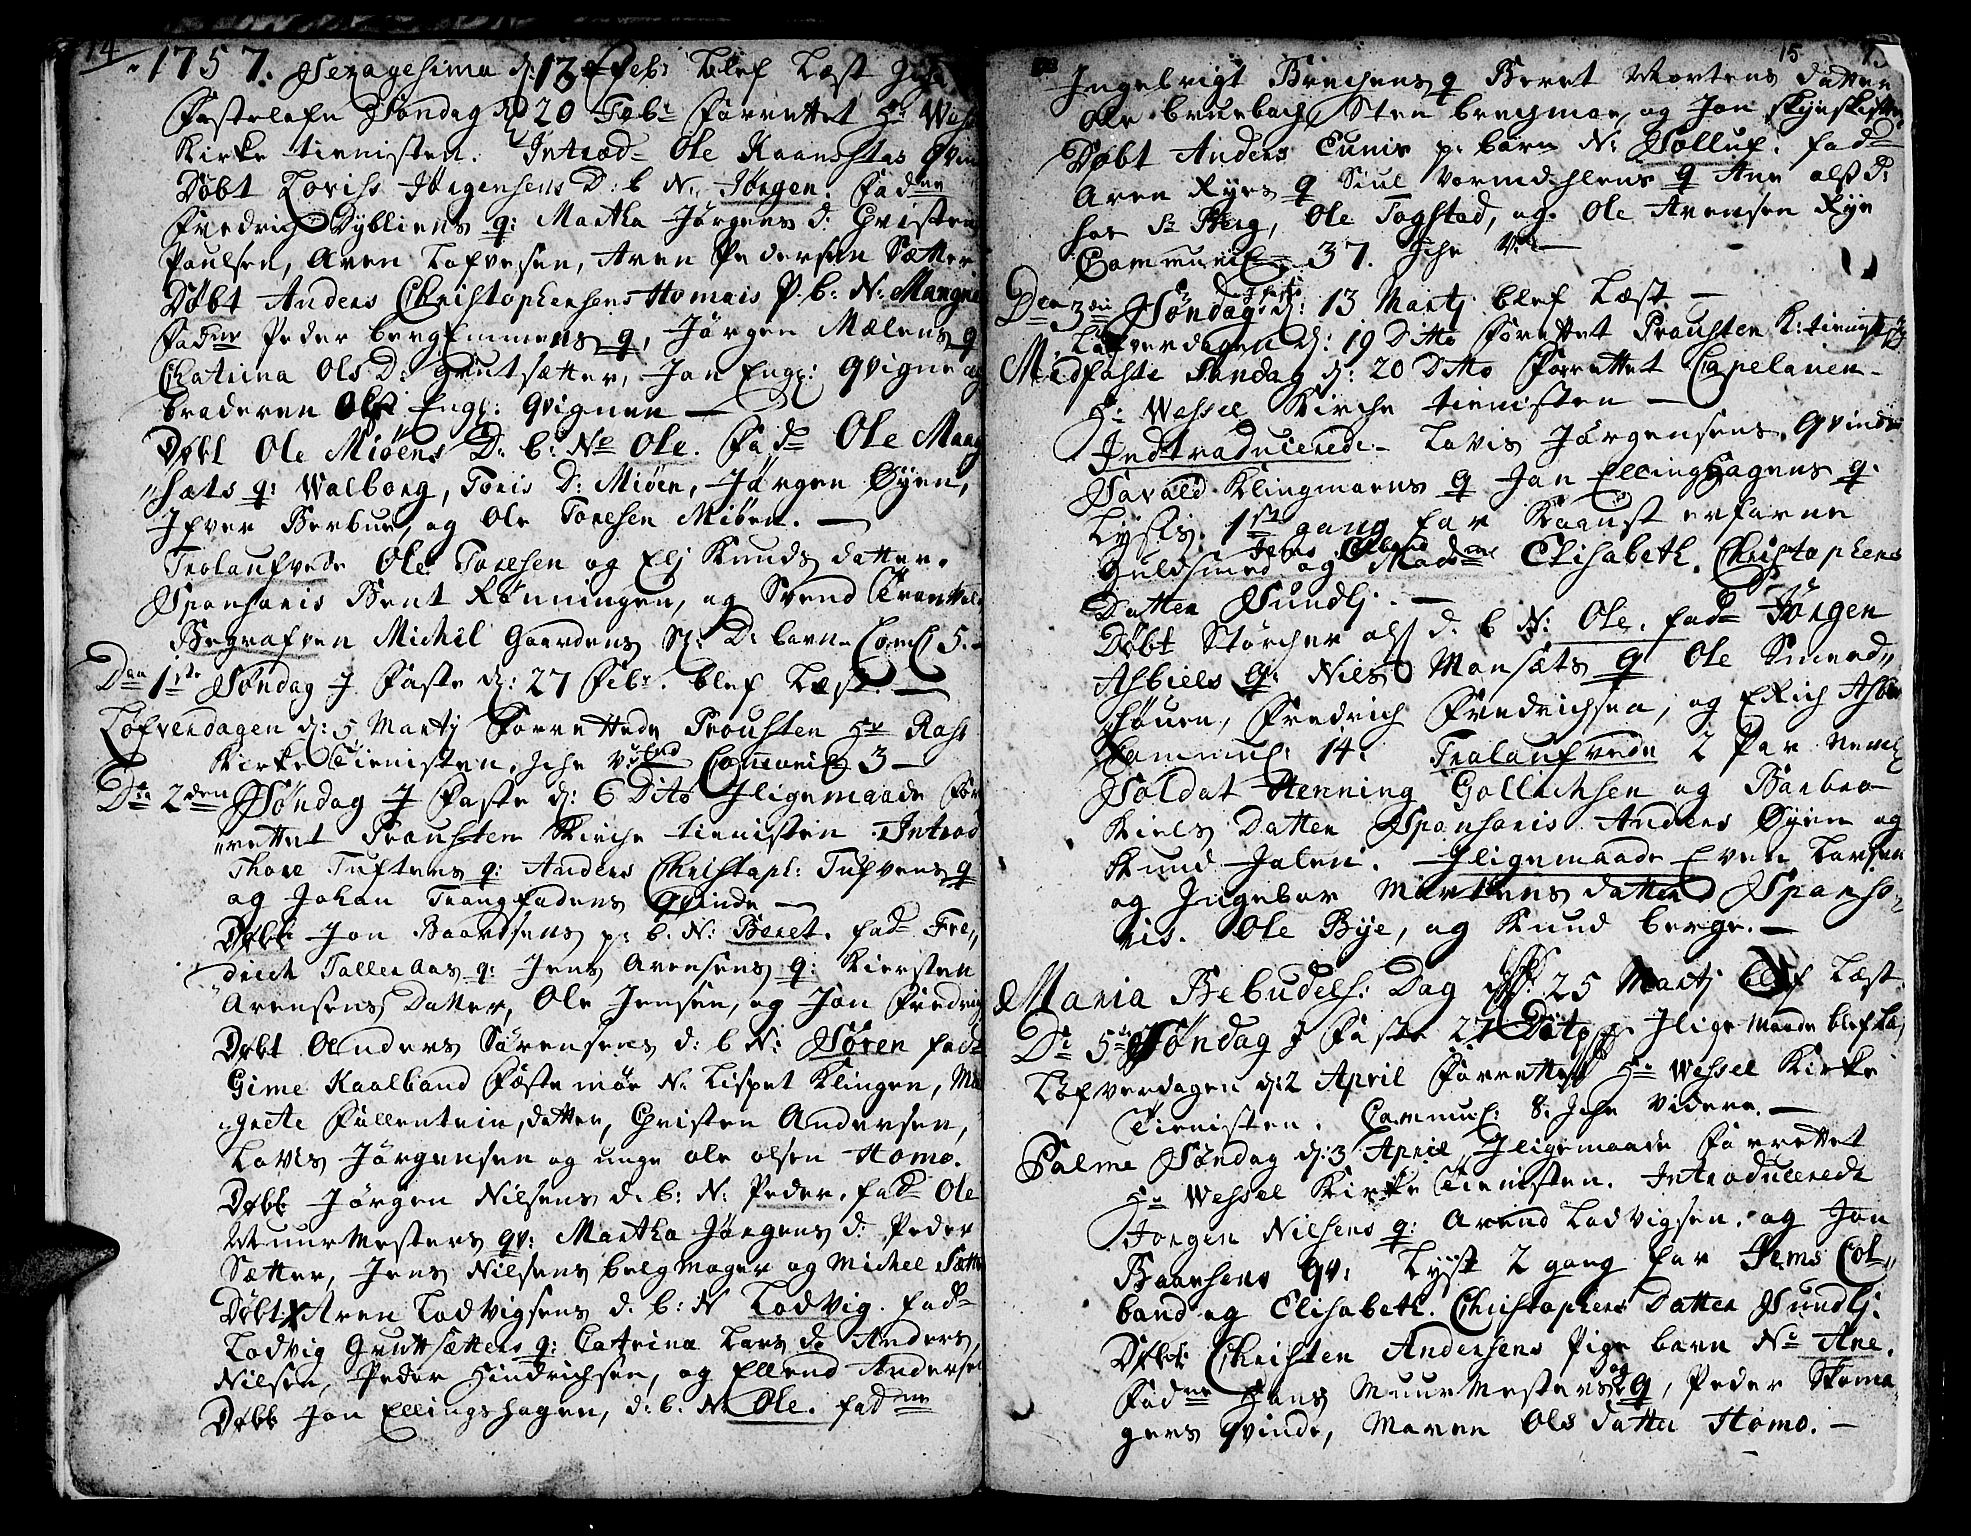 14
1757. Sexagesima d: 13 Feb: blef Læst
Fastelafn Søndag d 20 Feb: forrettet Hr
Kirke tienisten. Introd- Ole
Døbt Lovis Jørgensens D: b N: Jørgen. fadne
Fredrich Dybliens q: Martha Jørgens d: Christen
Paulsen, Aren Lofvesen, Aren Pedersen Sætter
Døbt Anders Christophersens Homois P. b: N: Mangne
Fadne Peder bergEnmens q, Jörgen Mælens q
Chatrina Ols D: Grutsætter, Jon Eng: qvigne og
broderen Ols Eng: qvignen —
Døbt Ole Miöens D: b: No Ole. Fadr Ole Maag
„sæts q: Walborg, Toris D: Miöen, Jörgen Øyen,
Ifver Berbue, og Ole Toresen Miöen. —
Trolaufvede Ole Toresen og Elj Knuds datter.
Sponsoris Bent Rönningen, og Svend
Begrafven Michil Gaardens D: barn. Com 5.
Den 1ste Søndag J Faste d: 27 Feb: blef Læst. —
Løfverdagen d: 5 Martj Forrettede Prousten Hr
Kirke Tienisten. Communic 3 —
Den 2den Søndag J Faste d: 6 Dito Jligemaade For
„rettet Prousten Kirche tienisten. Introd
Thore Tuftens q: Anders Christoph: Tufvens q
og Johan Trangfadens qvinde —
Døbt Jon Baardsens p: b. N: Beret. fadr Fre„
drich Tallenaas q: Jens Arensens q: Kiersten
Arensens Datter, Ole Jensen, og Jon Fredrig
Døbt Anders Sörensens d: b N: Søren fadr
Gime Kaalband Fæste möe N. Lispet Klingen, Mar
„grete Fällentein, datter, Christen Andersen,
Lovis Jörgensen og unge ole olsen Homo.
Døbt Jörgen Nilsens d. b: N: Peder. fadr Ole
MuurMesters qv: Martha Jörgens d: Peder
Sætter, Jens Nilsens belgmager og Michel Sætter
Døbt Aren Lodvigsens d. b: N Lodvig. fadr
Lodvig Gruttsætters q: Catrina Lars d: Anders
Nilsen, Peder Hindrichsen, og Ellend Andersen
Døbt Jon Ellingshagen, d: b: N Ole. fadne
15
Ingebrigt Brechens q Beret Mortens datter
Ole bruebach, Sten brechmoe, og Jon
Døbt Anders Eunis p: barn N: Sollue. fadr
Aren Ryes q Siul Vormdhlens q Ane ols d:
hos Sr Berg, Ole Togstad, og Ole Arensen Rye
Communic 37. Iche V: —
Den 3die Søndag i faste d: 13 Martj blef Læst —
Løfverdagen d: 19 Ditto Forrettet Prousten K: tienist
Midfaste Søndag d: 20 Ditto Forrettet Capelanen
Hr Wessel Kirche tienisten —
Indtroducerede Lovis Jörgensens qvinde
Savald Klingmoens q Jon Ellinghagens q.
Lysts 1ste gang for Kaanst erfarne
Guldsmed Jems Colband og Madme Elisabeth. Christophers
Datter Sundlj. —
Døbt Störcher ols d. b N: Ole. fadr Jörgen
Asbiels q: Niels Monsæts q Ole Smend„
höuen, Fredrich Fredrichsen, og Erich
Commuc: 14. Trolaufvede 2 Par Neml
Soldat Henning Gollichsen og Barbro
Kiels Datter Sponsoris Anders Øyen og
Knud Jolen. Jligemaade Even Larsen
og Ingebor Mortens datter Sponso„
ris. Ole Bye, og Knud berge. —
Maria Bebudels: Dag d: 25 Martj blef Læst
D: 5te Søndag J Faste 27 Dito Jlige Maade blef
Løfverdagen d: 2 April Forrettet Hr Wessel Kirke
Tienisten. Commuc: 8. Iche videre. —
Palme Søndag d: 3 April Jligemaade forrettet
Hr Wessel Kirke Tienisten. Introducerede
Jorgen Nilsens q: Arend Lodvigsen. og Jon
Baarsens qv: Lyst 2 gang for Jems Col„
band og Elisabeth. Christophers Datter Sundlj.
Døbt Christen Andersens Pige barn No Ane.
Fadne Hans MuurMesters q, Peder Skoma„
gers qvinde, Maren Ols datter Homo. —